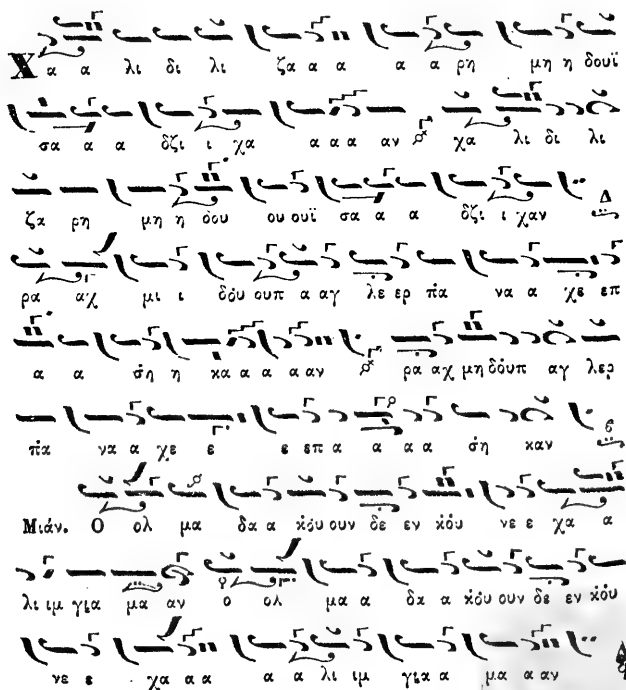 Χα α λι δι λι ζα α α α α ρη μη η δουϊ
σα α α δζι ι χα α α α αν χα λι δι λι
ζα ρη μη η δου ου ουϊ σα α α δζι ι χαν Δ
ρα αχ μι ι δόυ ουπ α αγ λε ερ πα να α χε επ
α α ση η κα α α α αν ρα αχ μη δόυπ αγ λερ
πα να α α χε ε ε επα α α α ση καν
Μιάν. Ο ολ μα δα α κόυ ουν δε εν κόυ νε ε χα α
λι ιμ για μα αν ο ολ μα α δα α κόυ ουν δε εν κόυ
νε ε χα α α α α λι ιμ για α μα α αν